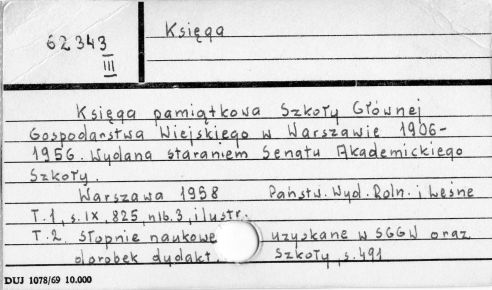 62343
III
Księga
Księga pamiątkowa Szkoły Głównej
Gospodarstwa Wiejskiego w Warszawie 1906-
1956. Wydana staraniem Senatu Akademickiego
Szkoły.
Warszawa 1958 Państw. Wyd. Roln. i Leśne
T.1, s. IX, 825, nlb. 3, ilustr.
T.2 Stopnie naukowe uzyskane w SGGW oraz
dorobek dydakt. Szkoły, s. 491
DUJ 1078/69 10.000